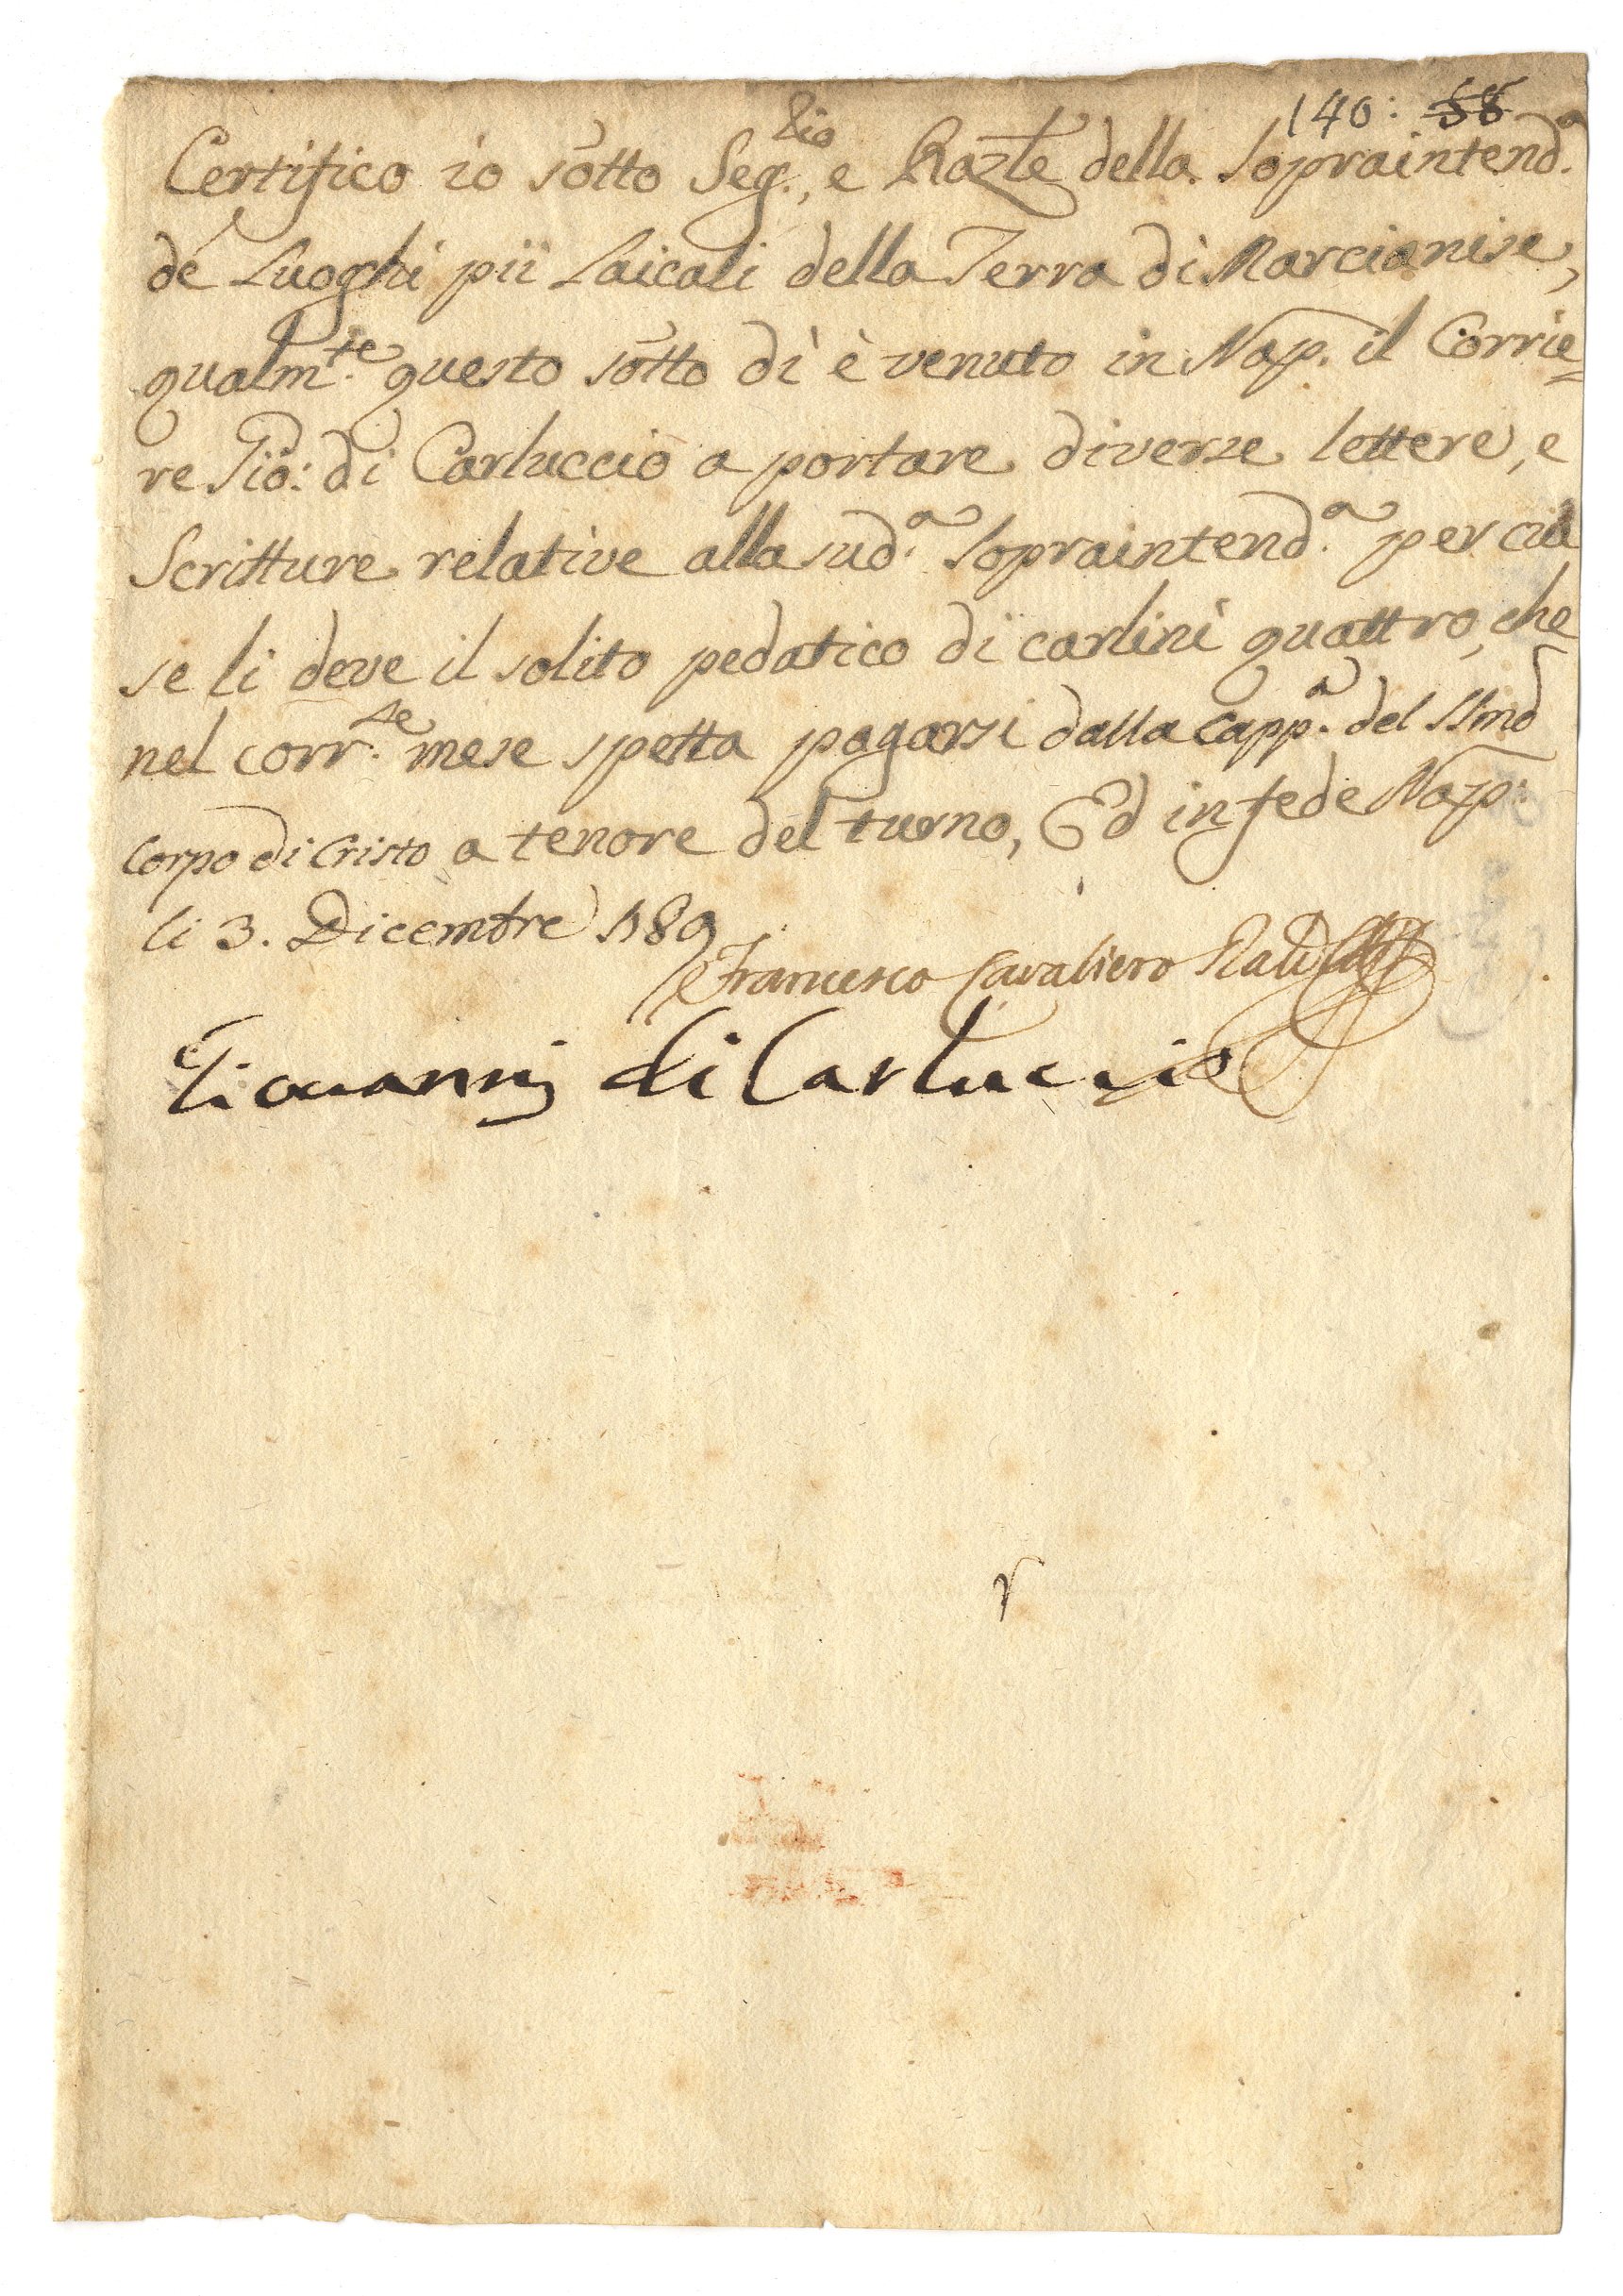 140: 58
Certifico io sotto Seg.rio, e Raz.le della Sopraintend.a
de' Luoghi pii Laicali della Terra di Marcianise,
qualm.te questo sotto dì è venuto in Nap. il Corrie=
re Gio: di Carluccio a portare diverse lettere, e
Scritture relative alla sud.a Sopraintend.a per cui
se li deve il solito pedatico di carlini quattro, che
nel corr.te mese spetta pagarsi dalla Capp.a del SSmo
Corpo di Cristo a tenore del turno, Ed in fede Nap.
li 3. Dicembre 1789
Francesco Cavaliero
Giovanni di Carluccio